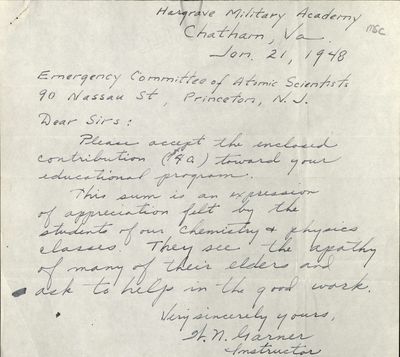 Hargrave Military Academy
Chatham, Va.
msc
Jan. 21, 1948
Emergency Committee of Atomic Scientists
90 Nassau St, Princeton, N.J.
Dear Sirs:
Please accept the enclosed
contribution ( ) toward your
educational program.
This sum is an expression
of appreciation felt by the
students of our Chemistry & physics
classes. They see the apathy
of many of their elders and
ask to help in the good work.
Very sincerely yours,
W. N. Garner
Instructor